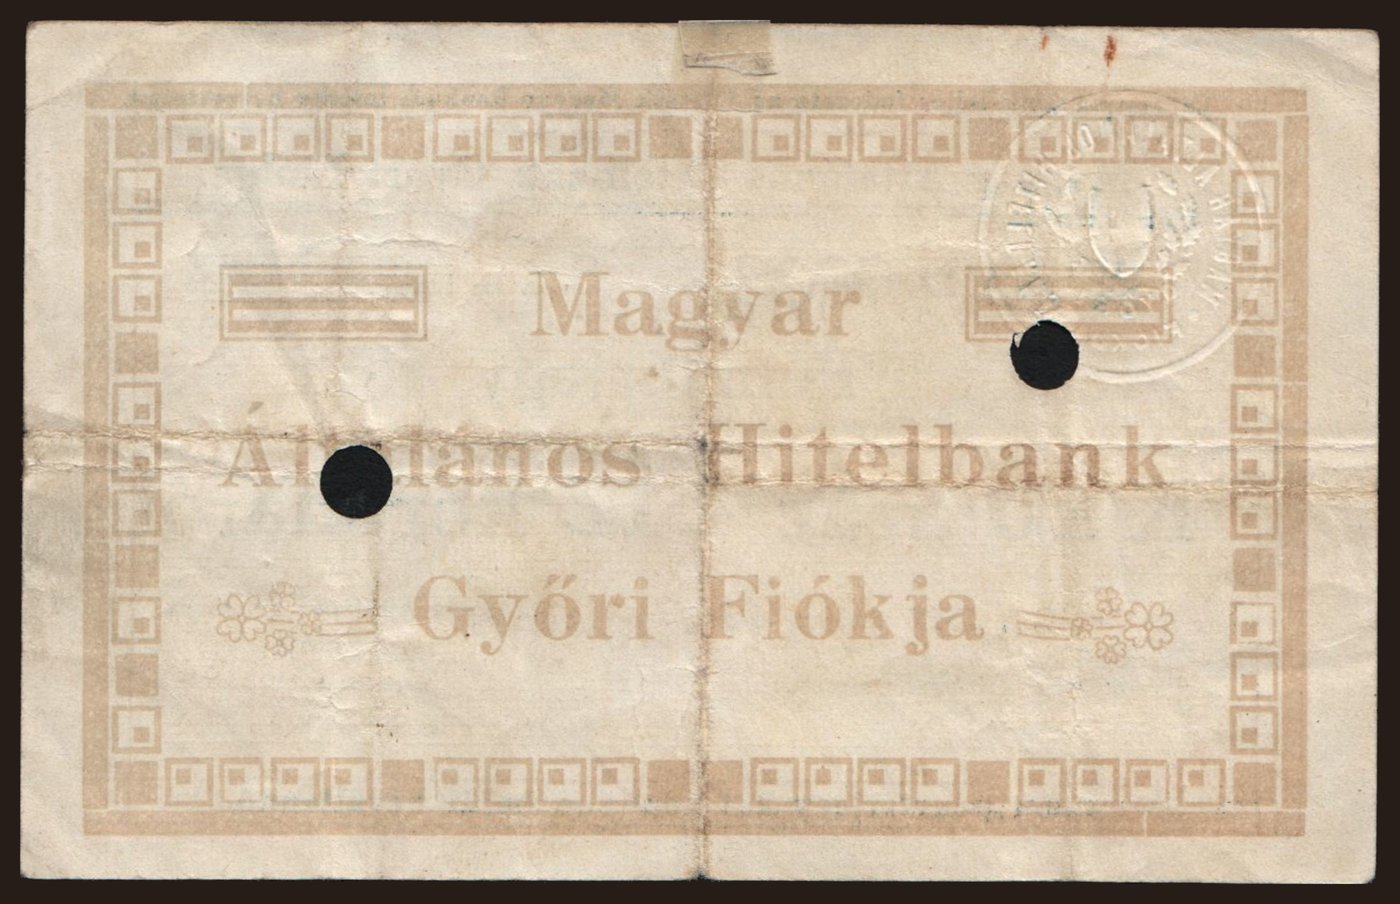 Magyar
Általános Hitelbank
Győri Fiókja